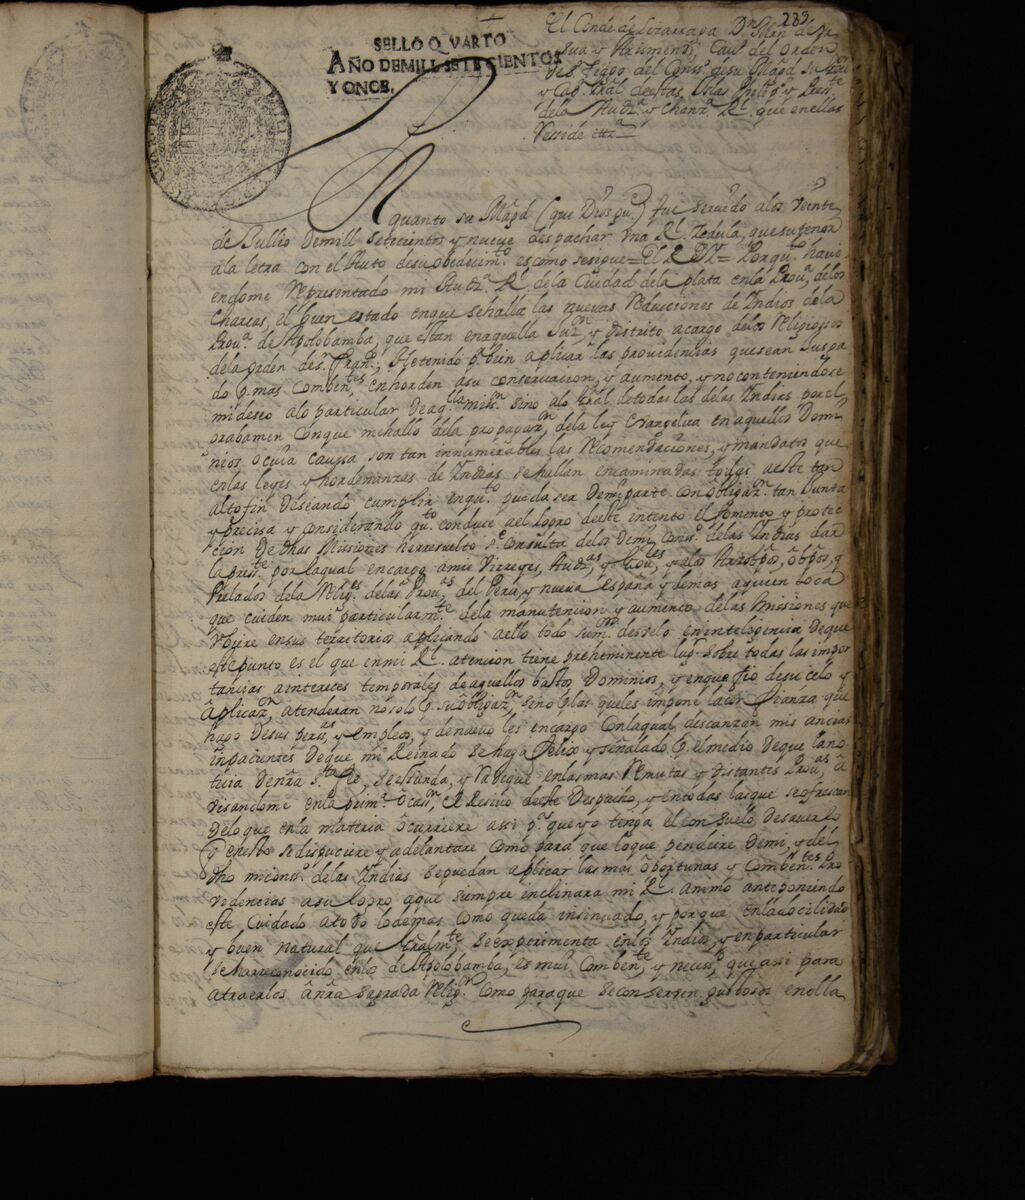 289
SELLO QVARTO
AÑO DE MILL SETECIENTOS
Y ONCE.
El Conde de Lizarraga Dn. Mrn de Vr
sua y Arismendi, Cauo. del Orden
de S. Tiago del Consº. de su Magd su Gou.r
y Cap. Gral de estas Yslas Philipas. y Press.te
dela Auda. y Chanza. Rl. que en ellas
rreside etta.
Por quanto su Magd (que Dios gue.) fue seruido alos veinte
de Jullio de mill setecientos y nueve despachar Vna Rl. Zedula, que su tenor
ala letra con el Auto de su obedecimto. es como se sigue = El REY = Por quto. haui
endome Representado mi Auda. Rl. dela Ciudad dela plata en la Proua. delos
Charcas, el buen estado en que se halla las nueuas Reduciones de Indios dela
Proua. de Apolobamba, que estan en aquella Jurn. y destrito acargo delos Religiossos
dela orden de sn. Franco., He tenido pr. bien aplicar las providencias que sean Juspa
do pr. mas combentes. en horden a su conseruacion, y aumento, y no conteniendose
mi deseo alo particular de aqlla. missn. sino alo Gral. de todas las delas Indias por el
grabamen con que me hallo dela propagazn. dela ley Evangelica en aquellos Domi
nios, Ocuia caussa son tan innumerables las Recomendaciones, y mandatos que
en las leyes y hordenanzas de Indias se hallan encaminadas todas a este tan
alto fin Deseando cumplir en quto. pueda ser de mi parte con obligazn. tan Junta
y precisa y considerando quto. conduce ael logro deste intento el fomento y protec
cion de dhas Missiones he rresuelto a Consulta delos de mi Cons. delas Indias dar
la presste. por la qual encargo a mis Virreyes, Audas. y Goures. y alos Arzobpos, obpos, y
Prelados dela Relign. delas Prouas. del Peru, y nueua España y demas a quien toca
que cuiden mui particularmte. dela manutencion y aumento delas Missiones que
Vbiere en sus territorios aplicando a ello todo sumo. desvelo en inteligencia de que
este punto es el que en mi Rl. atencion tiene preheminente lugr. sobre todas las impor
tancias a intereces temporales de aquellos bastos Dominios, y en que fio de su celo y
aplicazn. atenderan no solo pr. su obligazn. sino pr. las que les impone la confianza que
hago de sus persas. y empleos, y de nueuo les encargo con la qual descanzan mis ancias
inpacientes de que mi Reinado se haga felix y señalado pr. el medio de que la no
ticia de nra sta. Fee, se estienda, y radique en las mas Remotas y distantes Prouas. a
visandome en la prima. ocassn. el Resiuo deste Despacho, y en todas las que se ofrescan
delo que en la materia ocurriere assi pa. que yo tenga el consuelo de sauer lo
q en esto se dispuciere y adelantare como para que lo que pendiere de mi, y del
dho mi cons. delas Indias se puedan aplicar las mas oportunas y combentes. Pro
videncias a su logro a que siempre inclinara mi Rl. animo anteponiendo
este cuidado a todo lo demas como queda insinuado, y porque en la docilidad
y buen natural que Gralmte. se experimenta en los Indios, y en particular
se ha rreconocido en los de Apolobamba, es mui combente. y necesso. que assi para
atraerlos a nra sagrada Relign. como para que se conseruen gustosos en ella